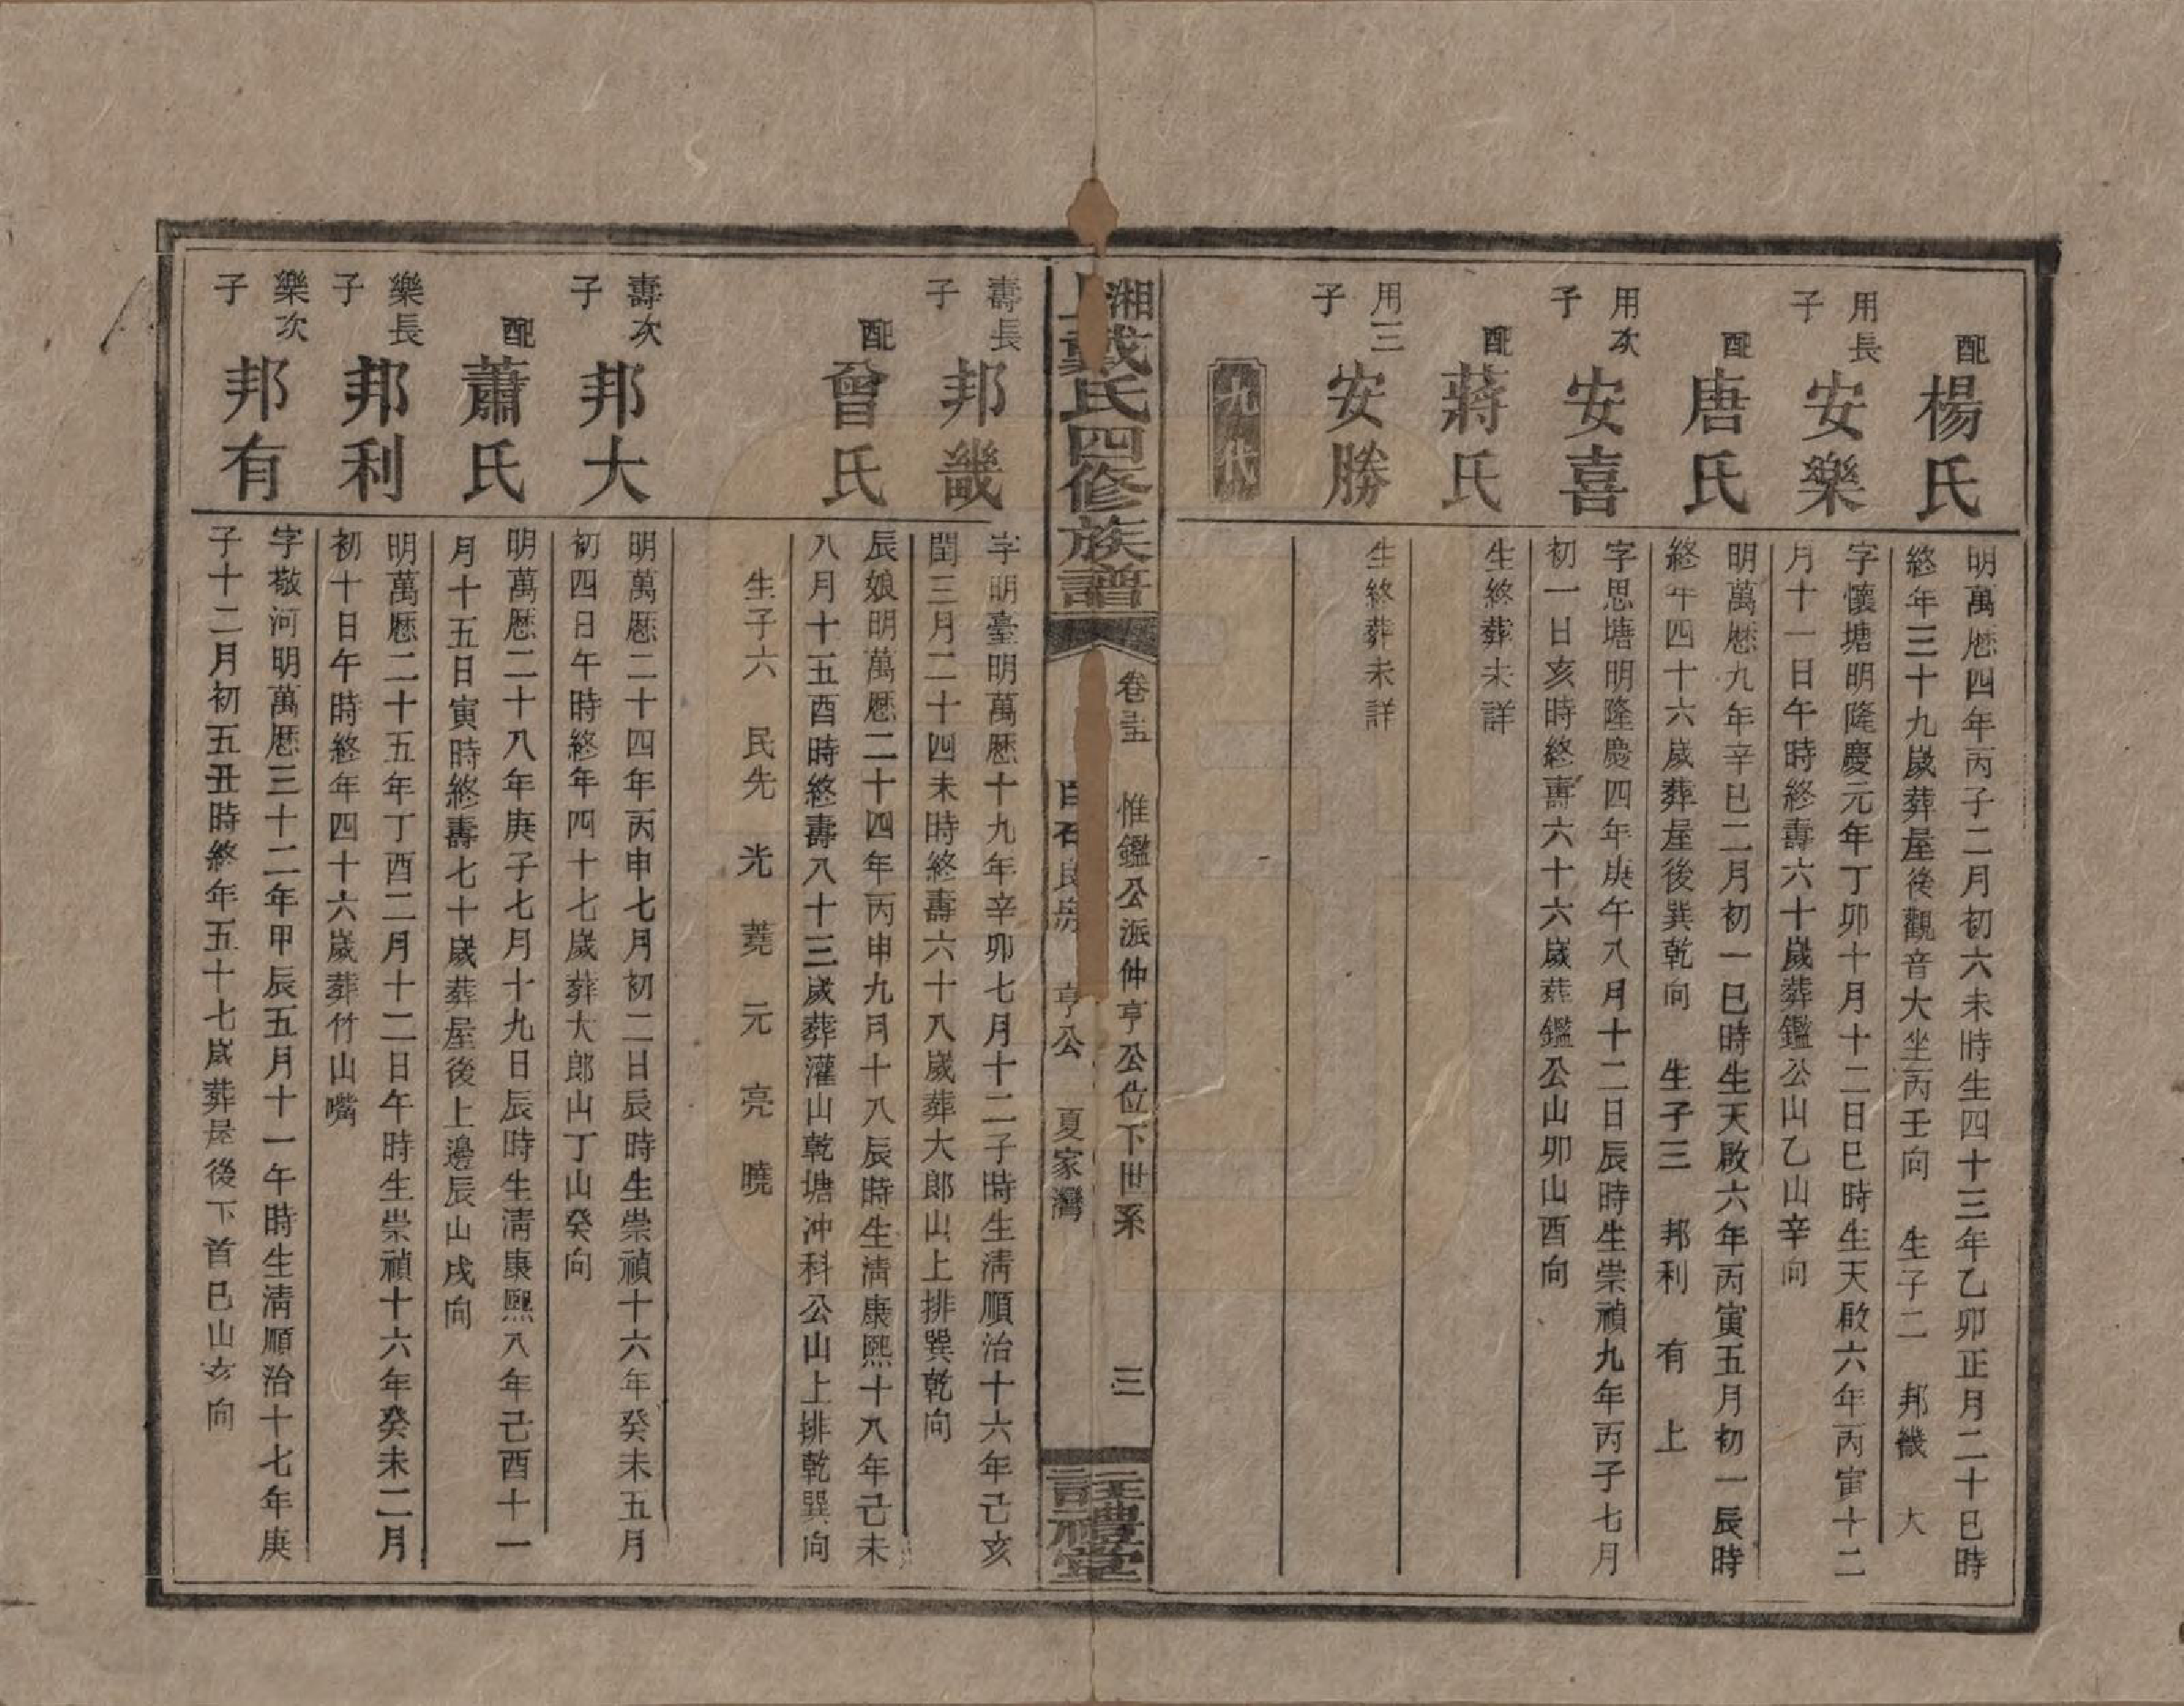 配
楊氏
明萬厯四年丙子二月初六未時生四十三年乙卯正月二十巳時
終年三十九歲葬屋後觀音大坐丙壬向 生子二 邦畿 大
用長子
安樂
字懷塘明隆慶元年丁卯十月十二日巳時生天啟六年丙寅十二
月十一日午時終壽六十歲葬鑑公山乙山辛向
配
唐氏
明萬厯九年辛巳二月初一巳時生天啟六年丙寅五月初一辰時
終年四十六歲葬屋後巽乾向 生子三 邦利 有 上
用次子
安喜
字思塘明隆慶四年庚午八月十二日辰時生崇禎九年丙子七月
初一日亥時終壽六十六歲葬鑑公山卯山酉向
配
蔣氏
生終葬未詳
用三子
安勝
生終葬未詳
九代
湘上戴氏四修族譜
卷 惟鑑公派仲亨公位下世系 三
白石 房 亨公 夏家灣
註禮堂
壽長子
邦畿
字明臺明萬厯十九年辛卯七月十二子時生清順治十六年己亥
閏三月二十四未時終壽六十八歲葬大郎山上排巽乾向
配
曾氏
辰娘明萬厯二十四年丙申九月十八辰時生清康熙十八年己未
八月十五酉時終壽八十三歲葬灌山乾塘冲科公山上排乾巽向
生子六 民先 光 蕘 元 亮 曉
壽次子
邦大
明萬厯二十四年丙申七月初二日辰時生崇禎十六年癸未五月
初四日午時終年四十七歲葬大郎山丁山癸向
配
蕭氏
明萬厯二十八年庚子七月十九日辰時生清康熙八年己酉十一
月十五日寅時終壽七十歲葬屋後上邊辰山戌向
樂長子
邦利
明萬厯二十五年丁酉二月十二日午時生崇禎十六年癸未二月
初十日午時終年四十六歲葬竹山嘴
樂次子
邦有
字敬河明萬厯三十二年甲辰五月十一午時生清順治十七年庚
子十二月初五丑時終年五十七歲葬屋後下首巳山亥向